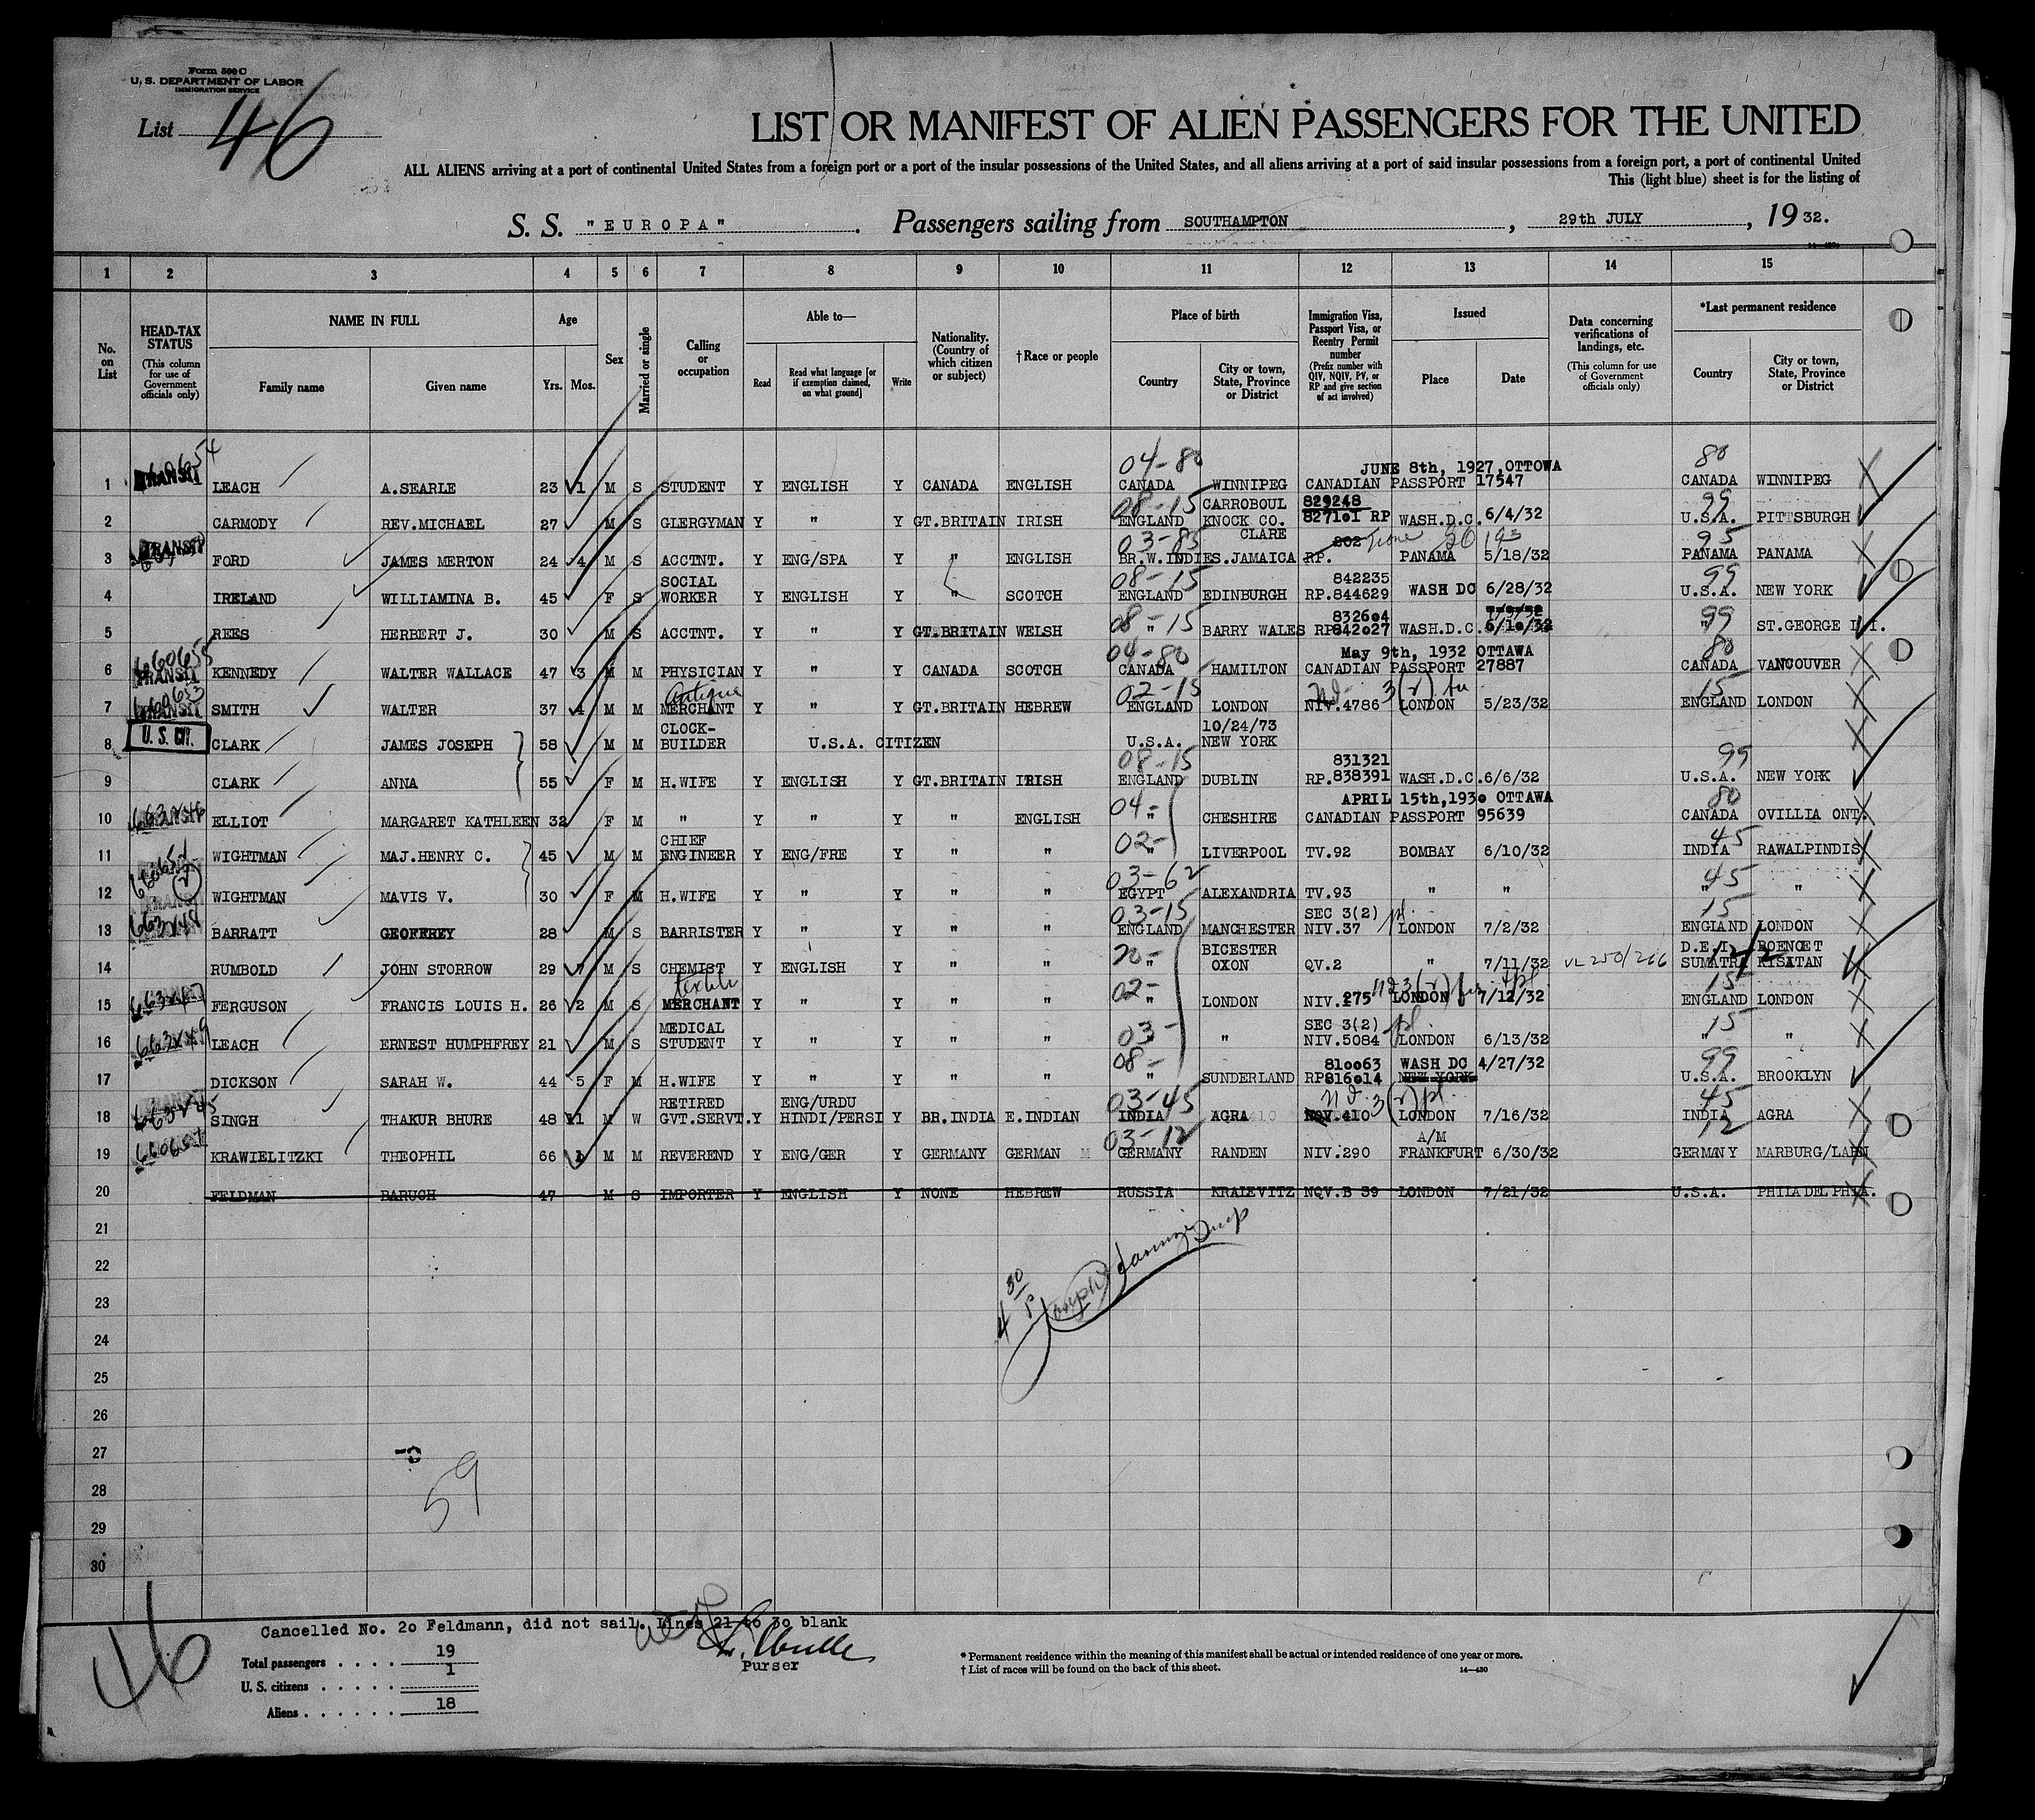 Form 500 C
U. S. DEPARTMENT OF LABOR
IMMIGRATION SERVICE
List 46
LIST OR MANIFEST OF ALIEN PASSENGERS FOR THE UNITED
ALL ALIENS arriving at a port of continental United States from a foreign port or a port of the insular possessions of the United States, and all aliens arriving at a port of said insular possessions from a foreign port, a port of continental United
This (light blue) sheet is for the listing of
S. S. "EUROPA". Passengers sailing from SOUTHAMPTON, 29th JULY, 1932.
1 2 3 4 5 6 7 8 9 10 11 12 13 14 15
No. on List
HEAD-TAX STATUS (This column for use of Government officials only)
NAME IN FULL Family name Given name
Age Yrs. Mos.
Sex
Married or single
Calling or occupation
Able to— Read Read what language [or if exemption claimed, on what ground] Write
Nationality. (Country of which citizen or subject)
†Race or people
Place of birth Country City or town, State, Province or District
Immigration Visa, Passport Visa, or Reentry Permit number (Prefix number with QIV, NQIV, PV, or RP and give section of act involved)
Issued Place Date
Data concerning verifications of landings, etc. (This column for use of Government officials only)
*Last permanent residence Country City or town, State, Province or District
04-80 JUNE 8th, 1927, OTTOWA 80
1 TRANSIT LEACH A.SEARLE 23 1 M S STUDENT Y ENGLISH Y CANADA ENGLISH CANADA WINNIPEG CANADIAN PASSPORT 17547 CANADA WINNIPEG
08-15 CARROBOUL 829248 99
2 CARMODY REV.MICHAEL 27 M S GLERGYMAN Y " Y GT.BRITAIN IRISH ENGLAND KNOCK CO. 827101 RP WASH.D.C. 6/4/32 U.S.A. PITTSBURGH
03-85 CLARE 202 95
3 TRANSIT FORD JAMES MERTON 24 4 M S ACCTNT. Y ENG/SPA Y " ENGLISH BR.W.INDIES.JAMAICA RP. PANAMA 5/18/32 PANAMA PANAMA
SOCIAL 08-15 842235 99
4 IRELAND WILLIAMINA B. 45 F S WORKER Y ENGLISH Y " SCOTCH ENGLAND EDINBURGH RP.844629 WASH DC 6/28/32 U.S.A. NEW YORK
08-15 832604 99
5 REES HERBERT J. 30 M S ACCTNT. Y " Y GT.BRITAIN WELSH " BARRY WALES RP842027 WASH.D.C. 6/10/32 " ST.GEORGE
660655 04-80 May 9th, 1932 OTTAWA 80
6 TRANSIT KENNEDY WALTER WALLACE 47 3 M M PHYSICIAN Y " Y CANADA SCOTCH CANADA HAMILTON CANADIAN PASSPORT 27887 CANADA VANCOUVER
660653 Antique 02-15 3(2) 15
7 TRANSIT SMITH WALTER 37 4 M M MERCHANT Y " Y GT.BRITAIN HEBREW ENGLAND LONDON NIV.4786 LONDON 5/23/32 ENGLAND LONDON
U.S. CIT. CLOCK- 10/24/73
8 CLARK JAMES JOSEPH 58 M M BUILDER U.S.A. CITIZEN U.S.A. NEW YORK
08-15 831321 99
9 CLARK ANNA 55 F M H.WIFE Y ENGLISH Y GT.BRITAIN IRISH ENGLAND DUBLIN RP.838391 WASH.D.C. 6/6/32 U.S.A. NEW YORK
04- APRIL 15th, 1930 OTTAWA 80
10 ELLIOT MARGARET KATHLEEN 32 F M " Y " Y " ENGLISH " CHESHIRE CANADIAN PASSPORT 95639 CANADA OVILLIA ONT.
CHIEF 02- 45
11 WIGHTMAN MAJ.HENRY C. 45 M M ENGINEER Y ENG/FRE Y " " " LIVERPOOL TV.92 BOMBAY 6/10/32 INDIA RAWALPINDIS
03-62 45
12 WIGHTMAN MAVIS V. 30 F M H.WIFE Y " Y " " EGYPT ALEXANDRIA TV.93 " " " "
03-15 SEC 3(2) 15
13 BARRATT GEOFFREY 28 M S BARRISTER Y " Y " " ENGLAND MANCHESTER NIV.37 LONDON 7/2/32 ENGLAND LONDON
20- BICESTER D.E.I.
14 RUMBOLD JOHN STORROW 29 7 M S CHEMIST Y ENGLISH Y " " " OXON QV.2 " 7/11/32 VL 250/266 SUMATRA KISATAN
textile 02- 15
15 FERGUSON FRANCIS LOUIS H. 26 2 M S MERCHANT Y " Y " " " LONDON NIV.275 LONDON 7/12/32 ENGLAND LONDON
MEDICAL 03- SEC 3(2) 15
16 LEACH ERNEST HUMPHFREY 21 M S STUDENT Y " Y " " " " NIV.5084 LONDON 6/13/32 " "
08- 810063 WASH DC 4/27/32 99
17 DICKSON SARAH W. 44 5 F M H.WIFE Y " Y " " " SUNDERLAND RP816014 NEW YORK U.S.A. BROOKLYN
RETIRED ENG/URDU 03-45 3(2) pl. 45
18 SINGH THAKUR BHURE 48 11 M W GVT.SERVT. Y HINDI/PERSI Y BR.INDIA E.INDIAN INDIA AGRA NQV.410 LONDON 7/16/32 INDIA AGRA
03-12 A/M 12
19 KRAWIELITZKI THEOPHIL 66 1 M M REVEREND Y ENG/GER Y GERMANY GERMAN GERMANY RANDEN NIV.290 FRANKFURT 6/30/32 GERMANY MARBURG/LAHN
20 FELDMAN BARUCH 47 M S IMPORTER Y ENGLISH Y NONE HEBREW RUSSIA KRALEVITZ NQV.B 39 LONDON 7/21/32 U.S.A. PHILADELPHIA.
21
22
23
24
25
26
27
28
29
30
4 30 P
59
46
Cancelled No. 20 Feldmann, did not sail. Lines 21 to 30 blank
Purser
Total passengers . . . . 19
1
U. S. citizens . . . . .
Aliens . . . . . . 18
* Permanent residence within the meaning of this manifest shall be actual or intended residence of one year or more.
† List of races will be found on the back of this sheet.
14—430